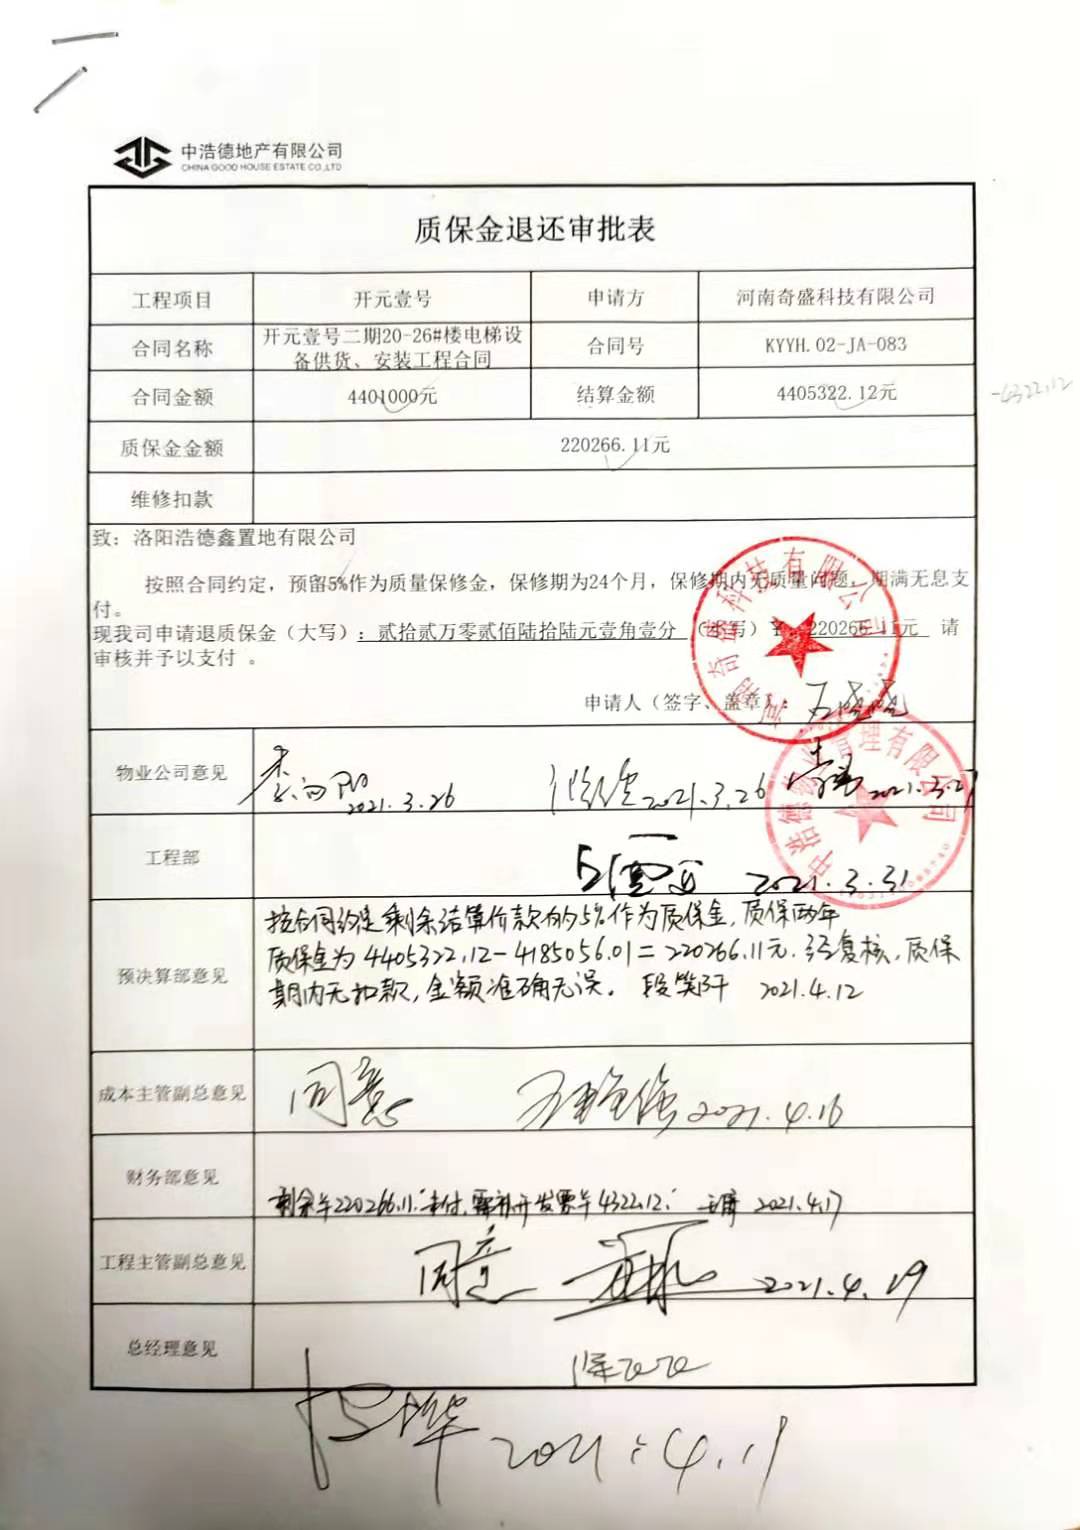 中浩德地产有限公司
CHINA GOOD HOUSE ESTATE CO.,LTD
质保金退还审批表
工程项目 开元壹号 申请方 河南奇盛科技有限公司
合同名称 开元壹号二期20-26#楼电梯设备供货、安装工程合同 合同号 KYYH.02-JA-083
合同金额 4401000元 结算金额 4405322.12元
-4322.12
质保金金额 220266.11元
维修扣款
致：洛阳浩德鑫置地有限公司
按照合同约定，预留5%作为质量保修金，保修期为24个月，保修期内无质量问题，期满无息支
付。
现我司申请退质保金（大写）：贰拾贰万零贰佰陆拾陆元壹角壹分 （小写） 220266.11元 请
审核并予以支付 。
申请人（签字、盖章）：
物业公司意见 2021.3.26 2021.3.26 2021.3.27
工程部 2021.3.31
预决算部意见
按合同约定剩余结算价款的5%作为质保金，质保两年
质保金为4405322.12-4185056.01=220266.11元.经复核,质保
期内无扣款,金额准确无误。 段笑汗 2021.4.12
成本主管副总意见 同意 2021.4.16
财务部意见 剩余￥220266.11未付,需补开发票￥4322.12. 2021.4.17
工程主管副总意见 同意 2021.4.19
总经理意见
2021.4.19